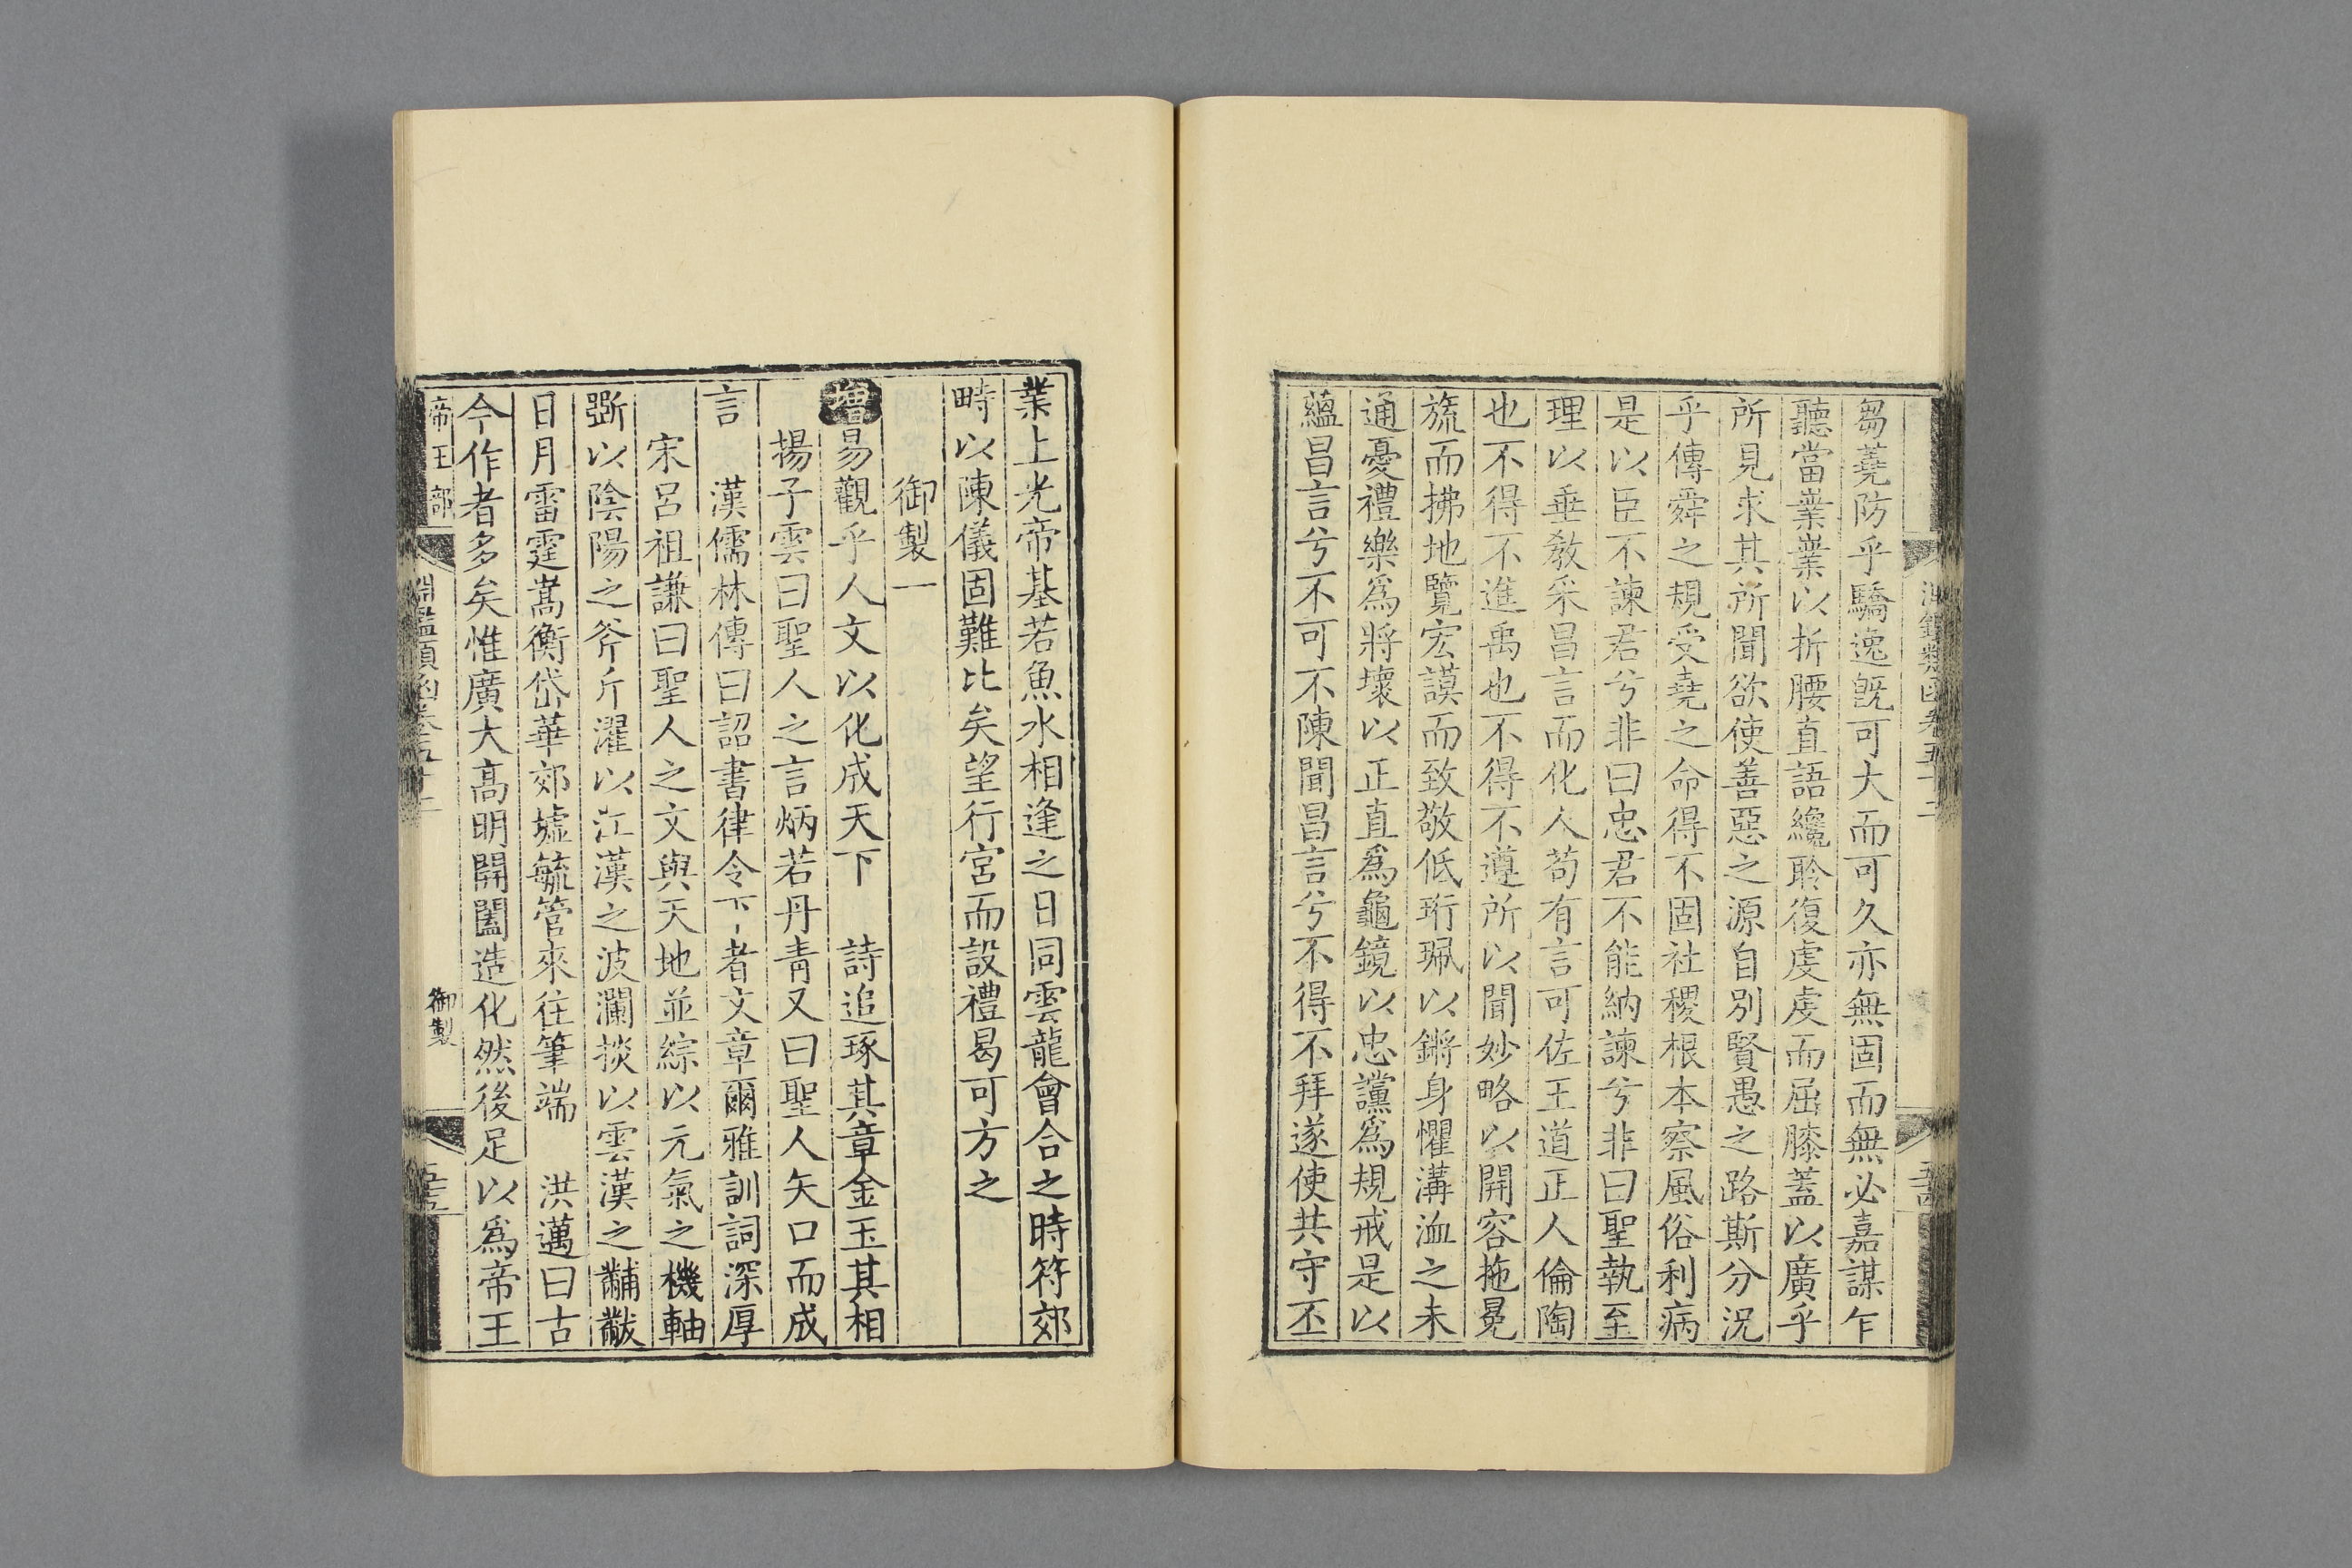 芻蕘防乎驕逸旣可大而可久亦無固而無必嘉謀乍
聽當業業以折腰直語纔聆復虔虔而屈膝蓋以廣乎
所見求其所聞欲使善惡之源自別賢愚之路斯分況
乎傳舜之規受堯之命得不固社稷根本察風俗利病
是以臣不諫君兮非曰忠君不能納諫兮非曰聖執至
理以垂敎采昌言而化人苟有言可佐王道正人倫陶
也不得不進禹也不得不遵所以聞妙略以開容拖冕
旒而拂地覽宏謨而致敬低珩珮以鏘身懼溝洫之未
通憂禮樂爲將壞以正直爲龜鏡以忠讜爲規戒是以
蘊昌言兮不可不陳聞昌言兮不得不拜遂使共守丕
業上光帝基若魚水相逢之日同雲龍會合之時符郊
畤以陳儀固難比矣望行宮而設禮曷可方之
御製一
增易觀乎人文以化成天下　詩追琢其章金玉其相
揚子雲曰聖人之言炳若丹靑又曰聖人矢口而成
言　漢儒林傳曰詔書律令下者文章爾雅訓詞深厚
宋呂祖謙曰聖人之文與天地並綜以元氣之機軸
斲以陰陽之斧斤濯以江漢之波瀾掞以雲漢之黼黻
日月雷霆嵩衡岱華郊墟毓管來往筆端　洪邁曰古
今作者多矣惟廣大高明開闔造化然後足以爲帝王
帝王部
淵鑑類函卷五十二
御製